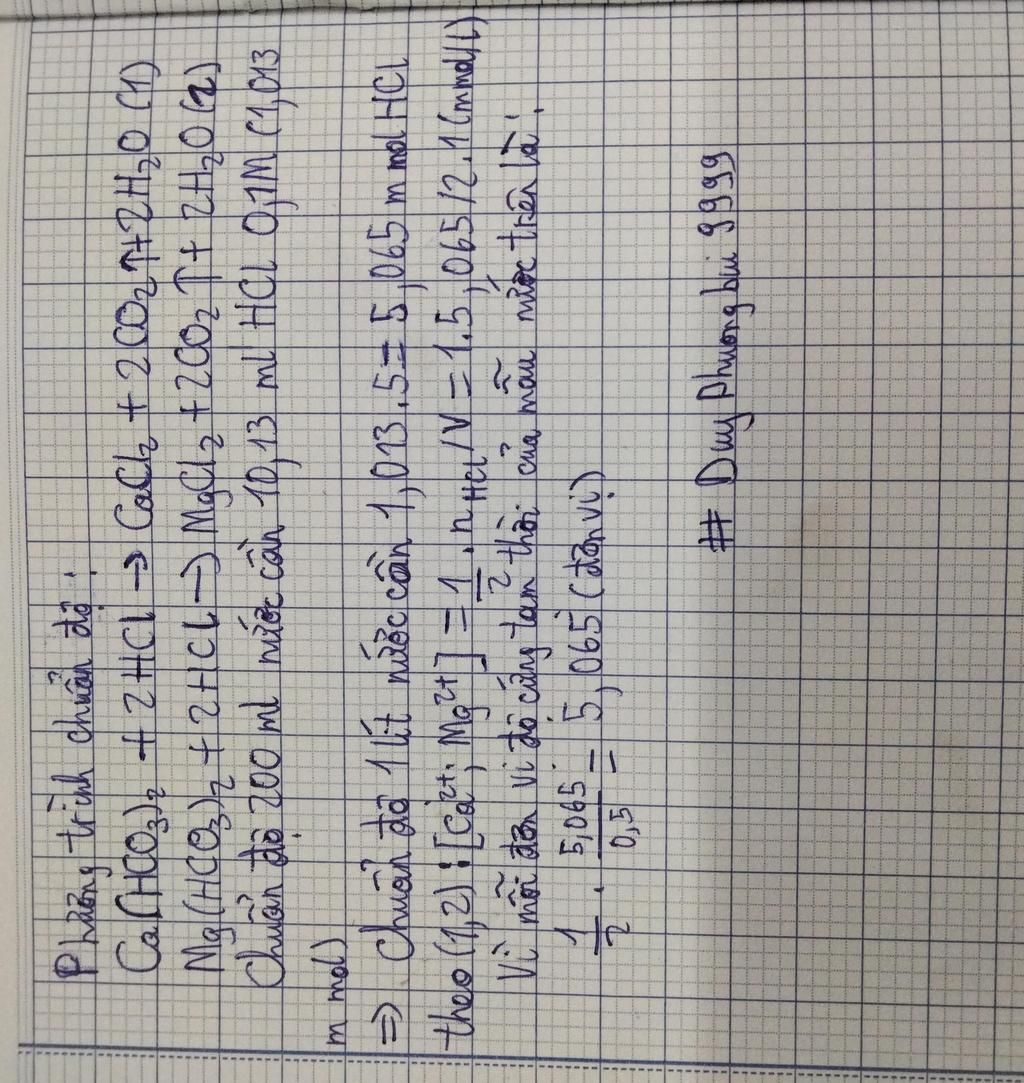 Phương trình chuẩn độ:
Ca(HCO3)2 + 2HCl → CaCl2 + 2CO2↑ + 2H2O (1)
Mg(HCO3)2 + 2HCl → MgCl2 + 2CO2↑ + 2H2O (2)
Chuẩn độ 200 ml nước cần 10,13 ml HCl 0,1M (1,013
m mol)
=> Chuẩn độ 1 lít nước cần 1,013.5 = 5,065 m mol HCl
theo (1,2): [Ca2+; Mg2+] = 1/2 . nHCl/V = 1.5,065/2.1 (mmol/l)
Vì mỗi đơn vị độ cứng tạm thời của mẫu nước trên là:
1/2 . 5,065/0,5 = 5,065 (đơn vị)
# Duy Phuong bui 9999